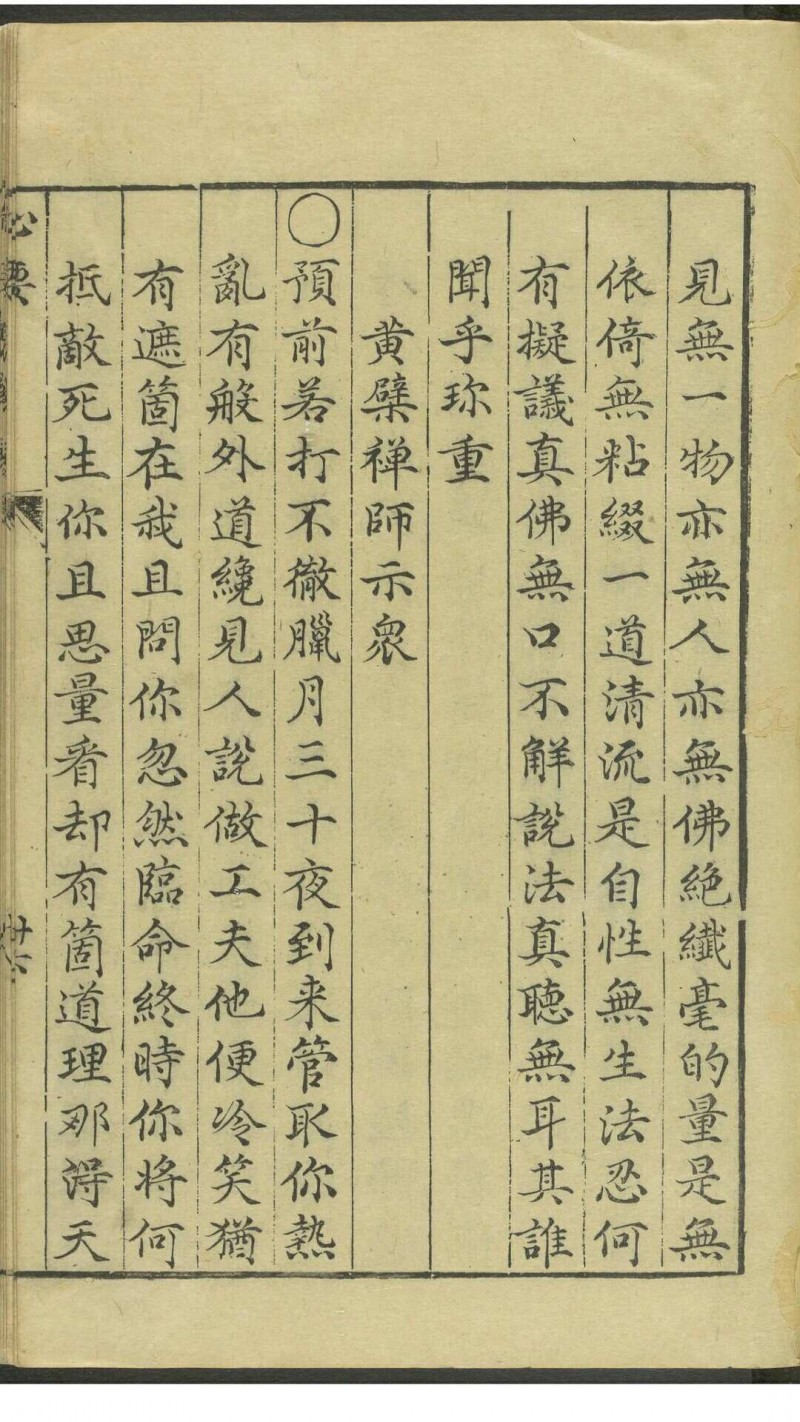 見無一物亦無人亦無佛絶纖毫的量是無
依倚無粘綴一道清流是自性無生法忍何
有擬議真佛無口不解説法真聽無耳其誰
聞乎珎重
黄檗禅師示衆
○預前若打不徹臘月三十夜到来管取你熱
亂有般外道纔見人説做工夫他便冷笑猶
有遮箇在我且問你忽然臨命終時你将何
抵敵死生你且思量看却有箇道理那得天
心要
卅六